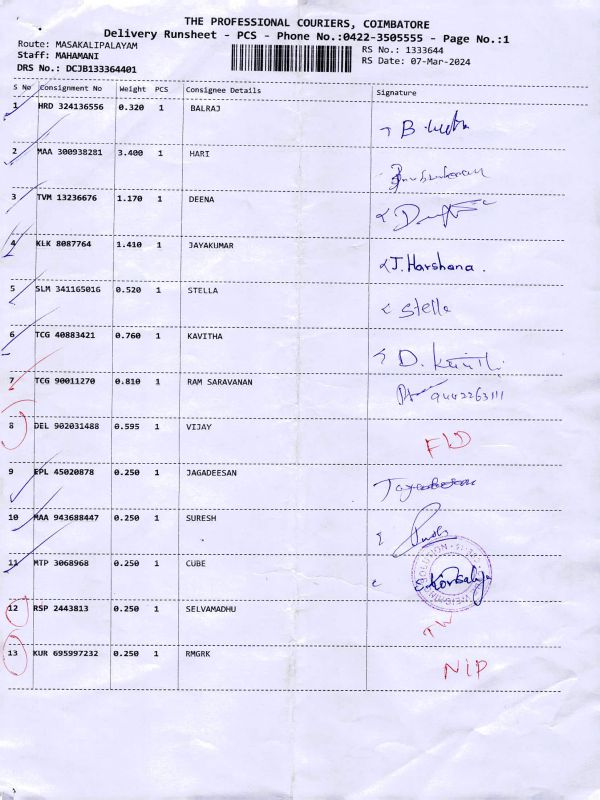 THE PROFESSIONAL COURIERS, COIMBATORE
Delivery Runsheet - PCS - Phone No.:0422-3505555 - Page No.:1
Route: MASAKALIPALAYAM
RS No.: 1333644
Staff: MAHAMANI
RS Date: 07-Mar-2024
DRS No.: DCJB133364401
S No Consignment No Weight PCS Consignee Details Signature
1 HRD 324136556 0.320 1 BALRAJ
2 MAA 300938281 3.400 1 HARI
3 TVM 13236676 1.170 1 DEENA
4 KLK 8087764 1.410 1 JAYAKUMAR J. Harshana.
5 SLM 341165016 0.520 1 STELLA Stella
6 TCG 40883421 0.760 1 KAVITHA D.
7 TCG 90011270 0.810 1 RAM SARAVANAN
8 DEL 902031488 0.595 1 VIJAY
9 EPL 45020878 0.250 1 JAGADEESAN
10 MAA 943688447 0.250 1 SURESH
11 MTP 3068968 0.250 1 CUBE
12 RSP 2443813 0.250 1 SELVAMADHU
13 KUR 695997232 0.250 1 RMGRK NIP